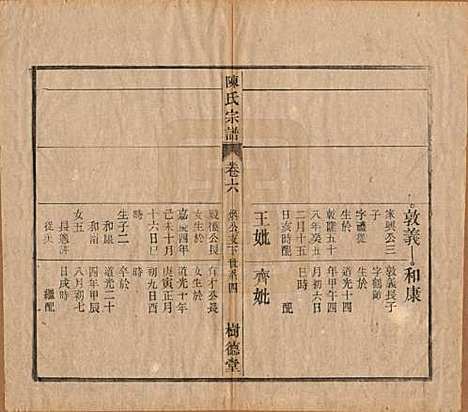 敦義 和康
家興公三 敦義長子
子 字鶴節
字禮從 生於
生於 道光十四
乾隆五十 年甲午四
八年癸丑 月初六日
二月十五 巳時
日亥時配 配
王妣 齊妣
陳氏宗譜
卷六
樹德堂
公長
女生於 女生於
嘉慶四年 道光十年
己未十月 庚寅正月
十六日巳 初九日酉
時 時
生子二 卒於
和康 道光二十
和南 四年甲辰
女五 八月初七
長適許 日戌時
繼配